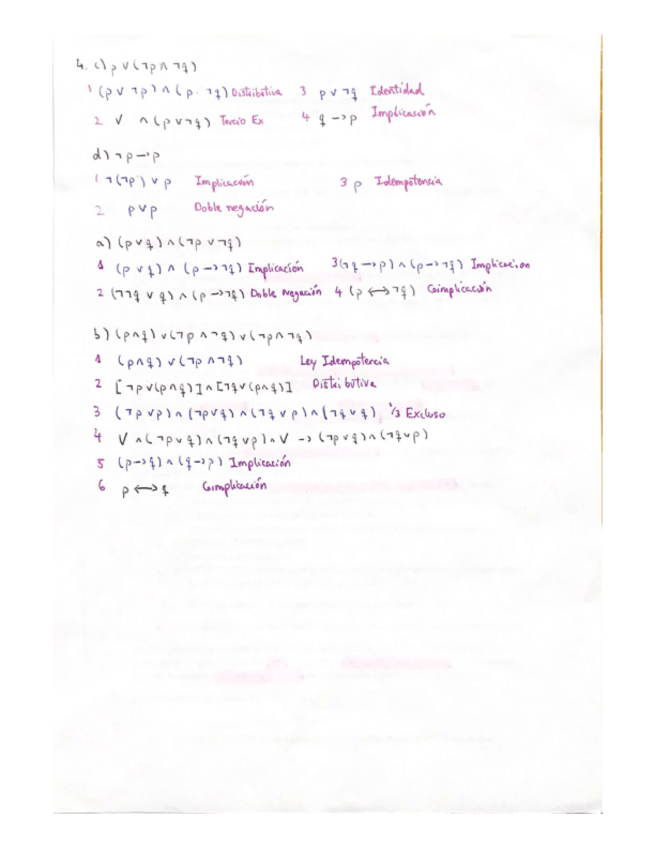 4. c) p ∨ (¬p ∧ ¬q)
1 (p ∨ ¬p) ∧ (p ¬q) Distributiva 3 p ∨ ¬q Identidad
2 V ∧ (p ∨ ¬q) Tercio Ex 4 q → p Implicación
d) ¬p → p
1 ¬(¬p) ∨ p Implicación 3 p Idempotencia
2 p ∨ p Doble negación
a) (p ∨ q) ∧ (¬p ∨ ¬q)
1 (p ∨ q) ∧ (p → ¬q) Implicación 3 (¬q → p) ∧ (p → ¬q) Implicacion
2 (¬¬q ∨ q) ∧ (p → ¬q) Doble negación 4 (p ↔ ¬q) Coimplicación
b) (p ∧ q) ∨ (¬p ∧ ¬q) ∨ (¬p ∧ ¬q)
1 (p ∧ q) ∨ (¬p ∧ ¬q) Ley Idempotencia
2 [¬p ∨ (p ∧ q)] ∧ [¬q ∨ (p ∧ q)] Distributiva
3 (¬p ∨ p) ∧ (¬p ∨ q) ∧ (¬q ∨ p) ∧ (¬q ∨ q) 1/3 Excluso
4 V ∧ (¬p ∨ q) ∧ (¬q ∨ p) ∧ V → (¬p ∨ q) ∧ (¬q ∨ p)
5 (p → q) ∧ (q → p) Implicación
6 p ↔ q Coimplicación